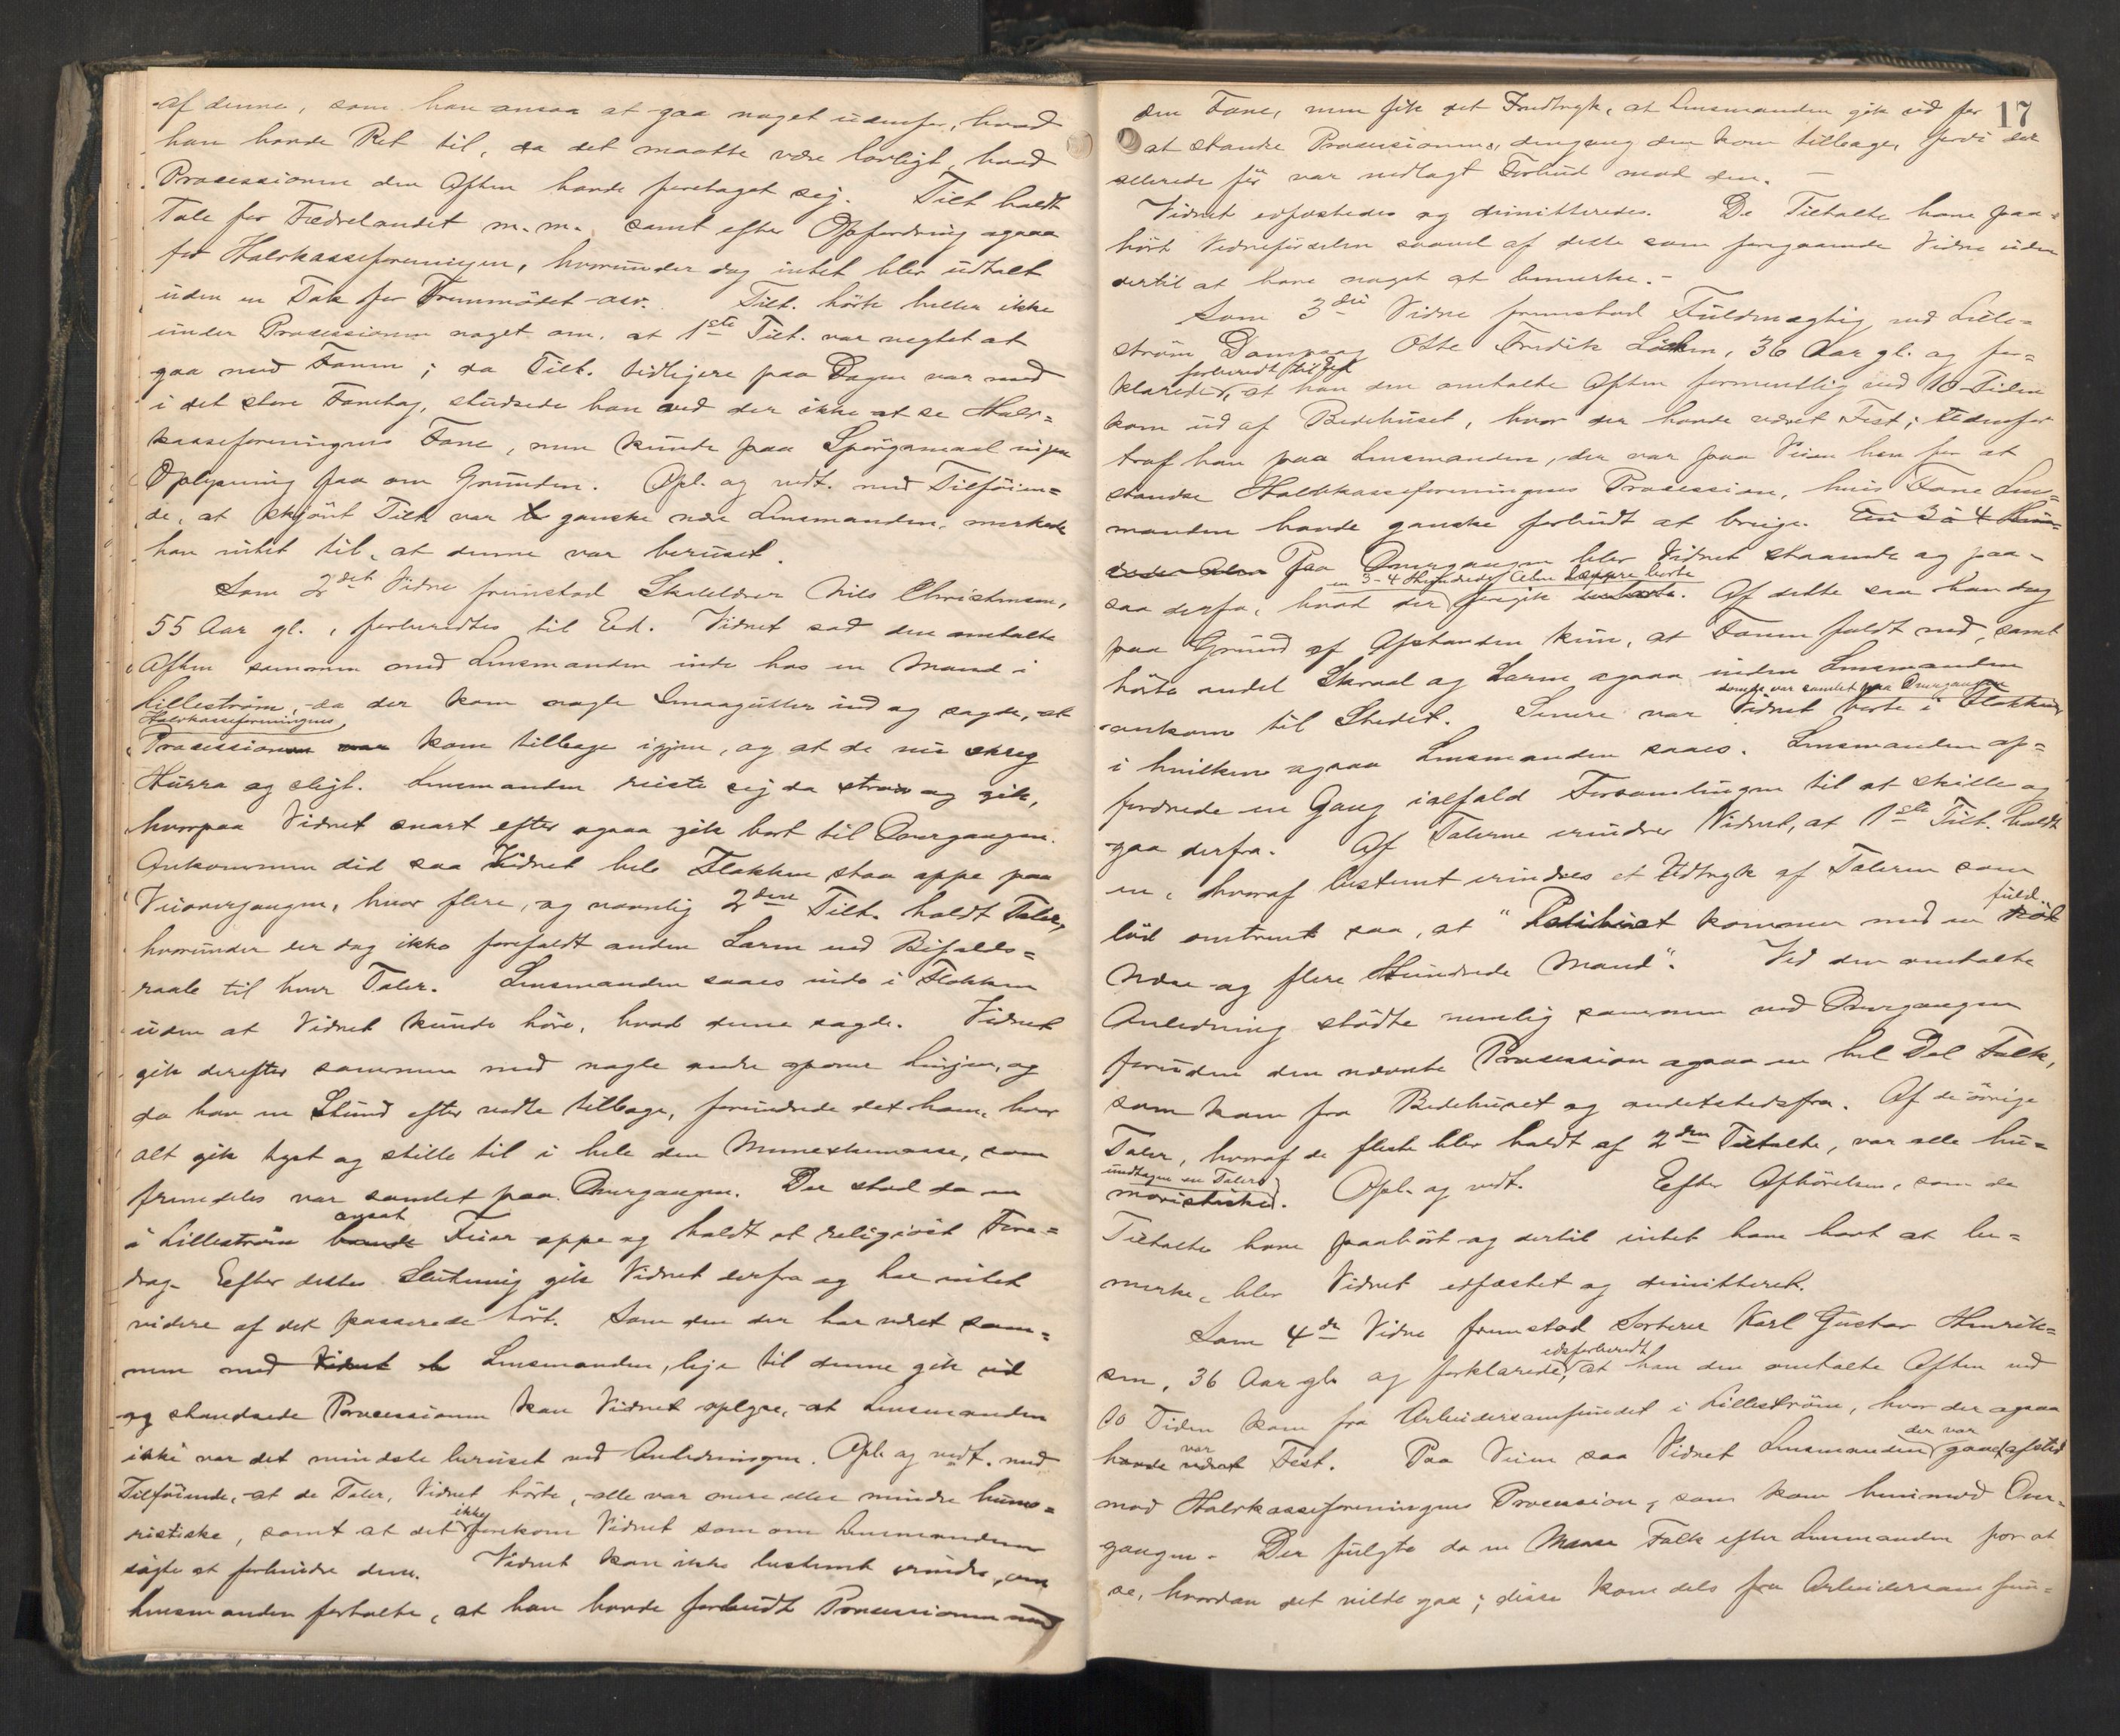 af denne, som han ansaa at gaa noget udenfor, hvad
han havde Ret til, da det maatte være lovligt, hvad
Processionen den Aften havde foretaget sig. Tilt. holdt
Tale for Fædrelandet m.m. samt efter Opfordring ogsaa
for Halvkasseforeningen, hvorunder dog intet blev udtalt
uden en Tak for Fremmödet osv. Tilt. hörte heller ikke
under Processionen noget om, at 1ste Tilt. var negtet at
gaa med Fanen; da Tilt. tidligere paa Dagen var med
i det store Fanetog, studsede han ved der ikke at se Halv=
kasseforeningens Fane, men kunde paa Spörgsmaal ingen
Oplysning faa om Grunden. Opl. og vedt. med Tilföien=
de, at skjönt Tilt. var ganske nær Lensmanden, merkede
han intet til, at denne var beruset.
Som 2det Vidne fremstod Skolelærer Nils Christensen,
55 Aar gl., forberedtes til Ed. Vidnet sad den omtalte
Aften sammen med Lensmanden inde hos en Mand i
Lilleström, da der kom nogle Smaagutter ind og sagde, at
Halvkasseforeningens
Processionen var kom tilbage igjen, og at de nu skreg
Hurra og sligt. Lensmanden reiste sig da strax og gik,
hvorpaa Vidnet snart efter ogsaa gik bort til Overgangen.
Ankommen did saa Vidnet hele Flokken staa oppe paa
Veiovergangen, hvor flere, og navnlig 2den Tilt. holdt Taler,
hvorunder der dog ikke forefaldt anden Larm end Bifalds=
raab til hver Taler. Lensmanden saaes inde i Flokken
uden at Vidnet kunde höre, hvad denne sagde. Vidnet
gik derefter sammen med nogle andre opover Linjen, og
da han en Stund efter vedte tilbage, forundrede det ham, hvor
alt gik tyst og stille til i hele den Menneskemasse, som
fremdeles var samlet paa Overgangen. Der stod da en
i Lilleström ansat Feier oppe og holdt et religiöst Fore=
drag. Efter dettes Slutning gik Vidnet derfra og har intet
videre af det passerede hört. Som den der har været sam=
men med Vidnet Lensmanden, lige til denne gik ud
og standsede Processionen kan Vidnet oplyse, at Lensmanden
ikke var det mindste beruset ved Anledningen. Opl. og vedt. med
Tilföiende, at de Taler, Vidnet hörte, alle var mere eller mindre humo=
ristiske, samt at det ikke forekom Vidnet som om Lensmanden
sögte at forhindre dem. Vidnet kan ikke bestemt erindre, om
Lensmanden fortalte, at han havde forbudt Processionen med
17
den Fane, men fik det Indtryk, at Lensmanden gik ud for
at standse Processionen, dengang den kom tilbage, fordi der
allerede för var nedlagt Forbud mod den. —
Vidnet edfæstedes og dimitteredes. De Tiltalte have paa=
hört Vidneförselen saavel af dette som foregaaende Vidne uden
dertil at have noget at bemerke. -
Som 3die Vidne fremstod Fuldmægtig ved Lille=
ström Dampsag Otte Fredrik Löchen, 36 Aar gl. og for=
forberedt til Ed
klarede, at han den omtalte Aften formentlig ved 10-Tiden
kom ud af Bedehuset, hvor der havde været Fest; udenfor
traf han paa Lensmanden, der var paa Veien hen for at
standse Halvkasseforeningens Procession, hvis Fane Lens=
manden havde ganske forbudt at bruge. En 3 à 4 Hun=
drede Alen Paa Overgangen blev Vidnet staaende og paa-
en 3-4 Hundrede Alen længere borte
saa derfra, hvad der foregik. Af dette saa han dog
paa Grund af Afstanden kun, at Fanen faldt ned, samt
hörte endel Skraal og Larm ogsaa inden Lensmanden
som da var samlet paa Overgangen
ankom til Stedet. Senere var Vidnet borte i Flokken
i hvilken ogsaa Lensmanden saaes. Lensmanden op=
fordrede en Gang ialfald Forsamlingen til at skille og
gaa derfra. Af Talerne erindrer Vidnet, at 1ste Tilt. holdt
en, hvoraf bestemt erindres et Udtryk af Taleren som
fuld
löd omtrent saa, at "Politiet kommer med en röd
Næse og flere Hundrede Mand". Ved den omtalte
Anledning stödte nemlig sammen ved Overgangen
foruden den nævnte Procession ogsaa en hel Del Folk,
som kom fra Bedehuset og andetstedsfra. Af de övrige
Taler, hvoraf de fleste blev holdt af 2den Tiltalte, var alle hu=
undtagen en Taler
moristiske. Opl. og vedt. Efter Afhörelsen, som de
Tiltalte have paahört og dertil intet have havt at be=
merke, blev Vidnet edfæstet og dimitteret.
Som 4de Vidne fremstod Sorterer Karl Gustav Henrik=
edsforberedt
sen, 36 Aar gl. og forklarede, at han den omtalte Aften ved
10 Tiden kom fra Arbeidersamfundet i Lilleström, hvor der ogsaa
var
der var
havde været Fest. Paa Veien saa Vidnet Lensmanden gaae afsted
mod Halvkasseforeningens Procession, som kom henimod Over=
gangen. Der fulgte da en Masse Folk efter Lensmanden for at
se, hvordan det vilde gaa; disse kom dels fra Arbeidersamfun=